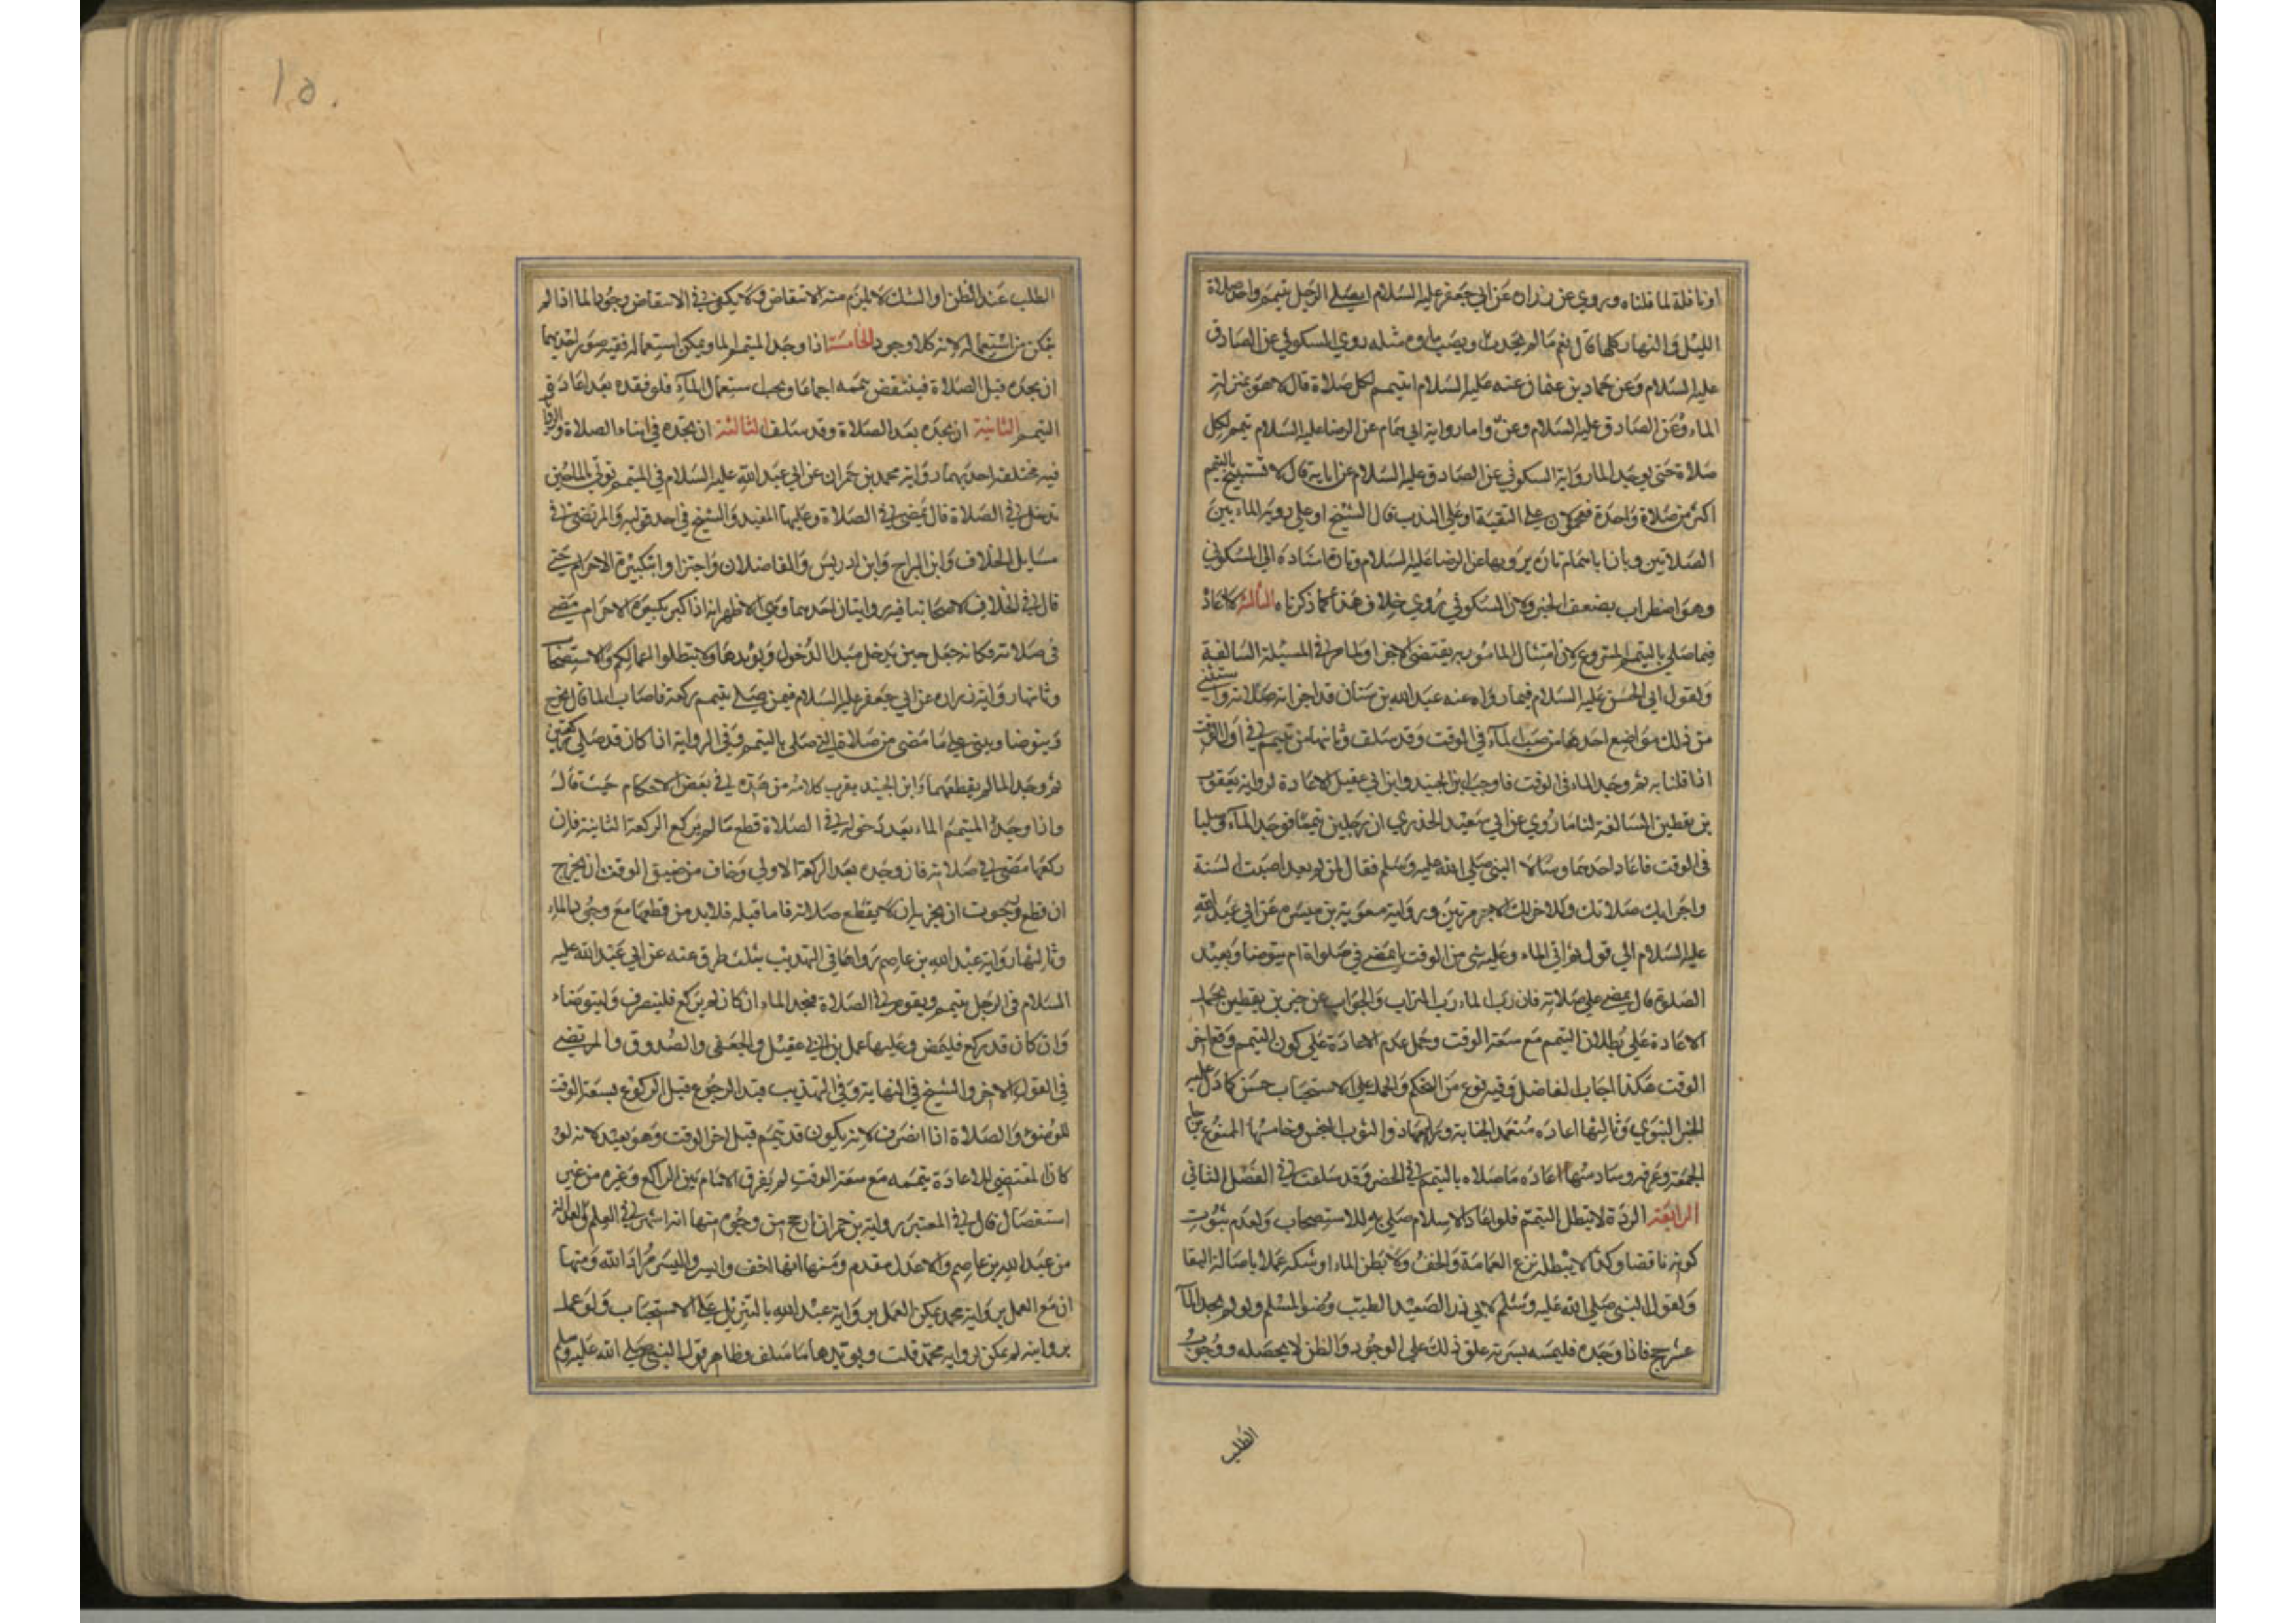 او نافلة لما قلناه وروي عن زراره عن ابي جعفر عليه السلام ايصلي الرجل بتيمم واحد صلاة
الليل والنهار كلها قال نعم ما لم يحدث او يصب ماء ومثله روي السكوني عن الصادق
عليه السلام وعن حماد بن عثمان عنه عليه السلام ايتيمم لكل صلاة قال لا هو بمنزلة
الماء وعن الصادق عليه السلام وعن واما رواية ابي همام عن الرضا عليه السلام تيمم لكل
صلاة حتى يوجد الما ورواية السكوني عن الصادق عليه السلام عن ابايه قال لا تستبيح بالتيمم
اكثر من صلاة واحدة فمحمولان على التقية او على الندب قال الشيخ او على روية الماء بين
الصلاتين وبان ابا همام تارة يرويها عن الرضا عليه السلام وتارة باسناده الى السكوني
وهو اضطراب يضعف الخبر ولان السكوني روي خلاف هذا كما ذكرناه الثالثة لا اعادة
فيما صلي بالتيمم المشروع لان امتثال المامور به يقتضي الاجزا ولما مر في المسيلة السالفة
ولقول ابي الحسن عليه السلام فيما رواه عنه عبد الله بن سنان قد اجزاته صلاته ويستثنى
من ذلك مواضع احدها من صب الماء في الوقت وقد سلف وثانيها من تيمم في اول الوقت
اذا قلنا به ثم وجد الماء في الوقت فاوجب ابن الجنيد وابن ابي عقيل الاعادة لرواية يعقوب
بن يقطين السالفة لنا ما روي عن ابي سعيد الخدري ان رجلين تيمما فوجد الماء وصليا
في الوقت فاعاد احدهما وسالا النبي صلي الله عليه وسلم فقال لمن لم يعد اصبت السنة
واجزاتك صلاتك وللاخر لك الاجر مرتين وبرواية معوية بن ميسره عن ابي عبد الله
عليه السلام الي قوله ثم اتي الماء وعليه شي من الوقت ايمضي في صلواة ام يتوضا ويعيد
الصلوة قال يمضي علي صلاته فان رب الماء رب التراب والجواب عن خبر بن يقطين بحمل
الاعادة علي بطلان التيمم مع سعة الوقت وحمل عدم الاعادة علي كون التيمم وقع اخر
الوقت هكذا اجاب الفاضل وفيه نوع من التحكم والحمل علي الاستحباب حسن كما دل عليه
الخبر النبوي وثالثها اعاده متعمد الجنابة ورابعها ذو الثوب النجس وخامسها الممنوع بزحام
الجمعة وعرفه وسادسها اعاده ما صلاه بالتيمم في الحضر وقد سلفت في الفصل الثاني
الرابعة الردة لا تبطل التيمم فلو اعاد الاسلام صلي به للاستصحاب ولعدم ثبوت
كونه ناقضا وكذا لا يبطله نزع العمامة والخف ولا بظن الماء او شكه عملا باصالة البقا
ولقول النبي صلى الله عليه وسلم لابي ذر الصعيد الطيب وضو المسلم ولو لم يجد الماء
عشر حجج فاذا وجده فليمسه بشرته علق ذلك على الوجود والظن لا يحصله ووجوب
الطلب
١٥٠
الطلب عند الظن او الشك لا يلزم منه الانتقاض ولا يكفي في الانتقاض وجود الما اذا لم
يتمكن من استعماله لانه كلا وجود الخامسة اذا وجد المتيمم الما ويمكن استعماله ففيه صور احديها
ان يجده قبل الصلاة فينتقض تيممه اجماعا ويجب استعمال الماء فلو فقده بعد اعاد في
التيمم الثانية ان يجده بعد الصلاة وقد سلف الثالثة ان يجده في اثناء الصلاة والروايات
فيه مختلفة احديهما رواية محمد بن حمران عن ابي عبد الله عليه السلام في المتيمم يوتي بالما حين
تدخل في الصلاة قال يمضي في الصلاة وعليها المفيد والشيخ في احد قوليه والمرتضى في
مسايل الخلاف وابن البراج وابن ادريس والفاضلان واجتزاوا بتكبيرة الاحرام حتي
قال في الخلاف لاصحابنا فيه روايتان احدهما وهي الاظهر انه اذا كبر تكبيرة الاحرام مضي
في صلاته فكانه جعل حين يدخل مبدا الدخول ويؤيدها ولا تبطلوا اعمالكم والاستصحاب
وثانيها رواية زراره عن ابي جعفر عليه السلام فيمن صلي بتيمم ركعة فاصاب الما قال يخرج
ويتوضا ويبني علي ما مضى من صلاته التي صلى بالتيمم وفي الرواية اذا كان قد صلي ركعتين
ثم وجد الما لم يقطعهما وابن الجنيد يقرب كلامه من هذه في بعض الاحكام حيث قال
واذا وجد المتيمم الماء بعد دخوله في الصلاة قطع ما لم يركع الركعة الثانية فان
ركعها مضى في صلاته فان وجده بعد الركعة الاولي وخاف من ضيق الوقت ان يخرج
ان قطع رجوت ان يجزيه ان لا يقطع صلاته فاما قبله فلا بد من قطعها مع وجود الماء
وثالثها رواية عبد الله بن عاصم رواها في التهذيب بثلث طرق عنه عن ابي عبد الله عليه
السلام في الرجل يتيمم ويقوم في الصلاة فيجد الماء ان كان لم يركع فلينصرف وليتوضاء
وان كان قد ركع فليمض وعليها عمل بن ابي عقيل والجعفي والصدوق والمرتضي
في القول الاخر والشيخ في النهاية وفي التهذيب قيد الرجوع قبل الركوع بسعة الوقت
للوضوء والصلاة اذا انصرف لانه يكون قد تيمم قبل اخر الوقت وهو بعيد لانه لو
كان المقتضي للاعادة تيممه مع سعة الوقت لم يفرق الامام بين الراكع وغيره من غير
استفصال قال في المعتبر رواية بن حمران ارجح من وجوه منها انه اشهر في العلم والعدالة
من عبد الله بن عاصم والاعدل مقدم ومنها انها اخف وايسر واليسر مراد الله ومنها
ان مع العمل برواية محمد يمكن العمل برواية عبد الله بالتنزيل علي الاستحباب ولو عمل
بروايته لم يمكن لرواية محمد قلت ويويدها ما سلف وظاهر قول النبي صلي الله عليه وسلم